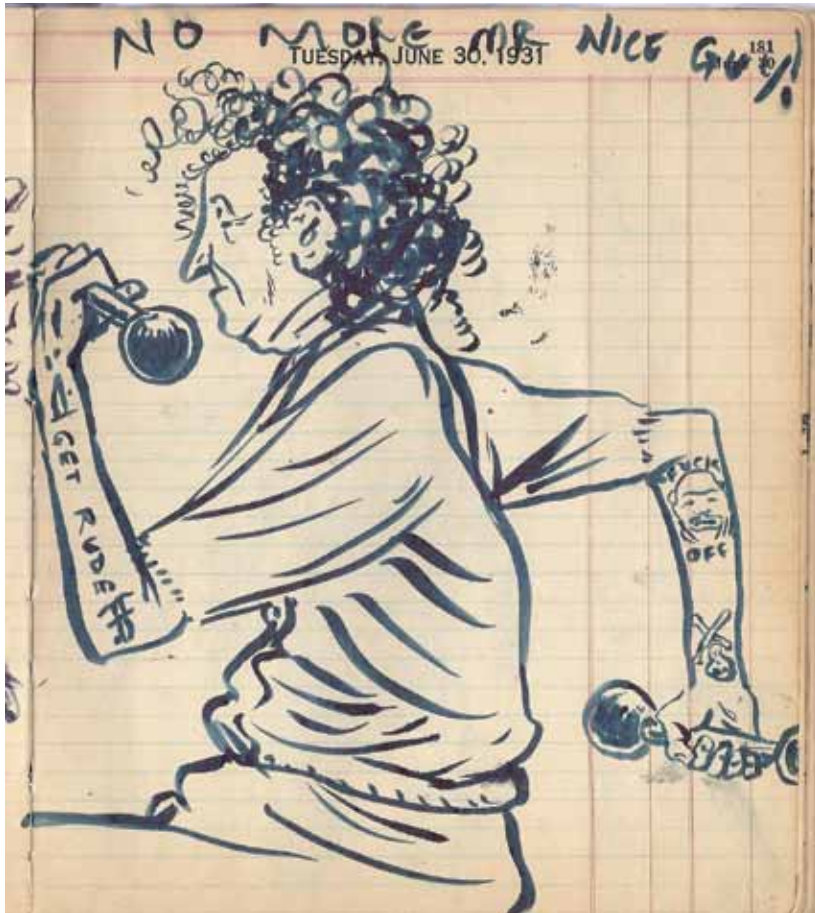 NO MORE MR NICE GUY!
TUESDAY, JUNE 30, 1931
181
GET RUDE
FUCK
OFF